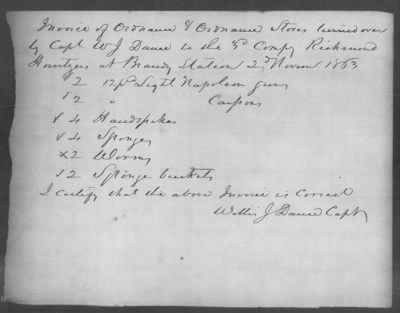 Invoice of Ordnance & Ordnance Stores turned over
by Capt W J Dance to the 3d Compy Richmond
Howitzers at Brandy Station 2d Novem 1863
2 12 pd Light Napoleon guns
2 " Caissons
4 Handspikes
4 Sponges
2 Worms
2 Sponge buckets
I certify that the above Invoice is correct
Willis J Dance Capt